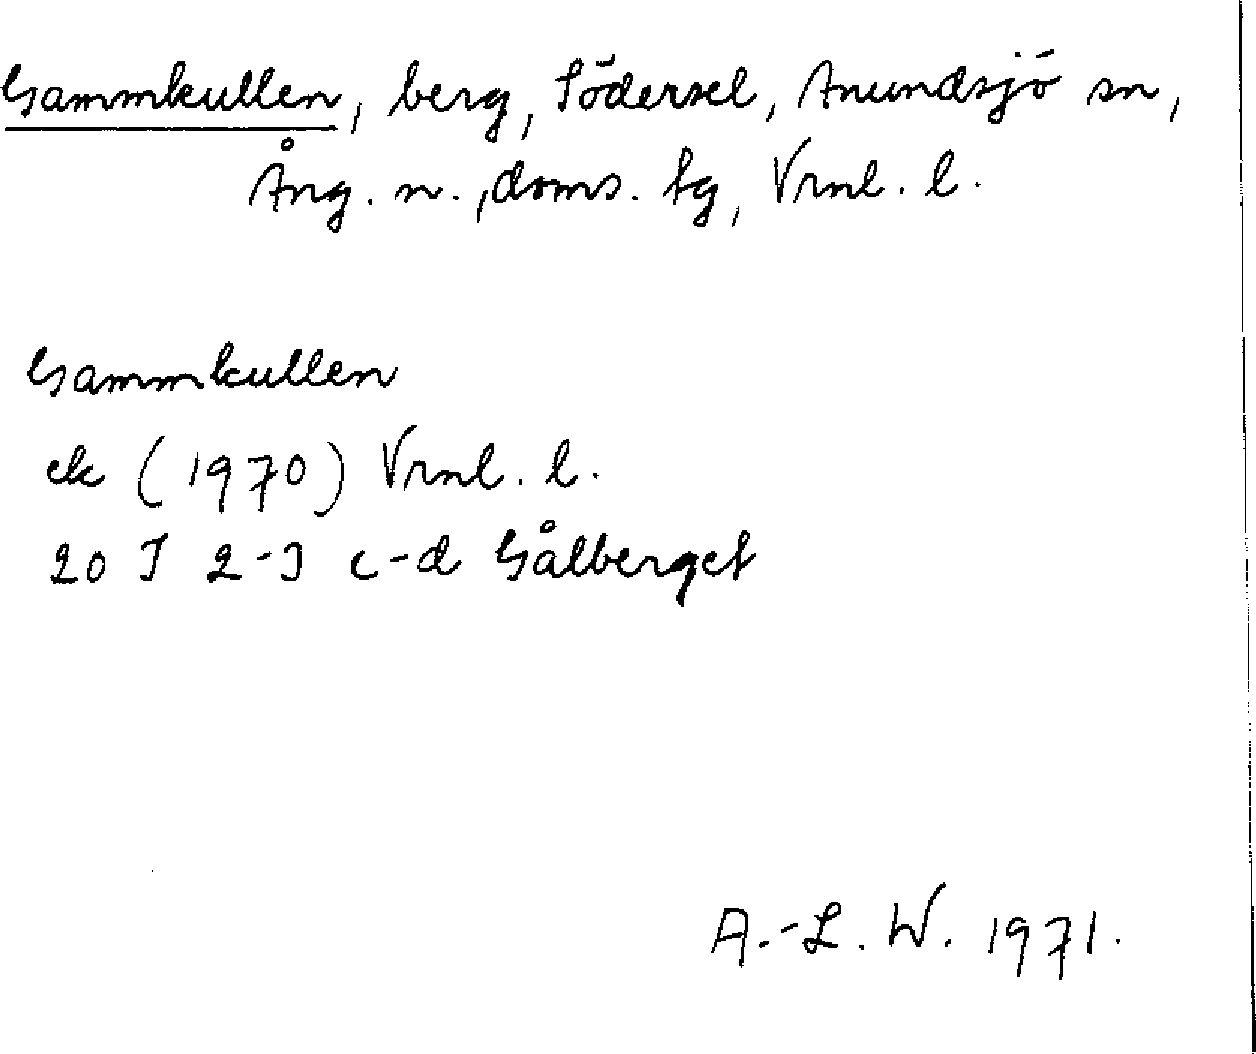 Gammkullen, berg, Södersel, Anundsjö sn,
Ång. n., doms. tg, Vrml. l.
Gammkullen
ek (1970) Vrml. l.
20 I 2-3 c-d Gålberget
A.-L. W. 1971.